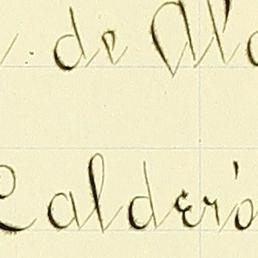 de Al
Calderó